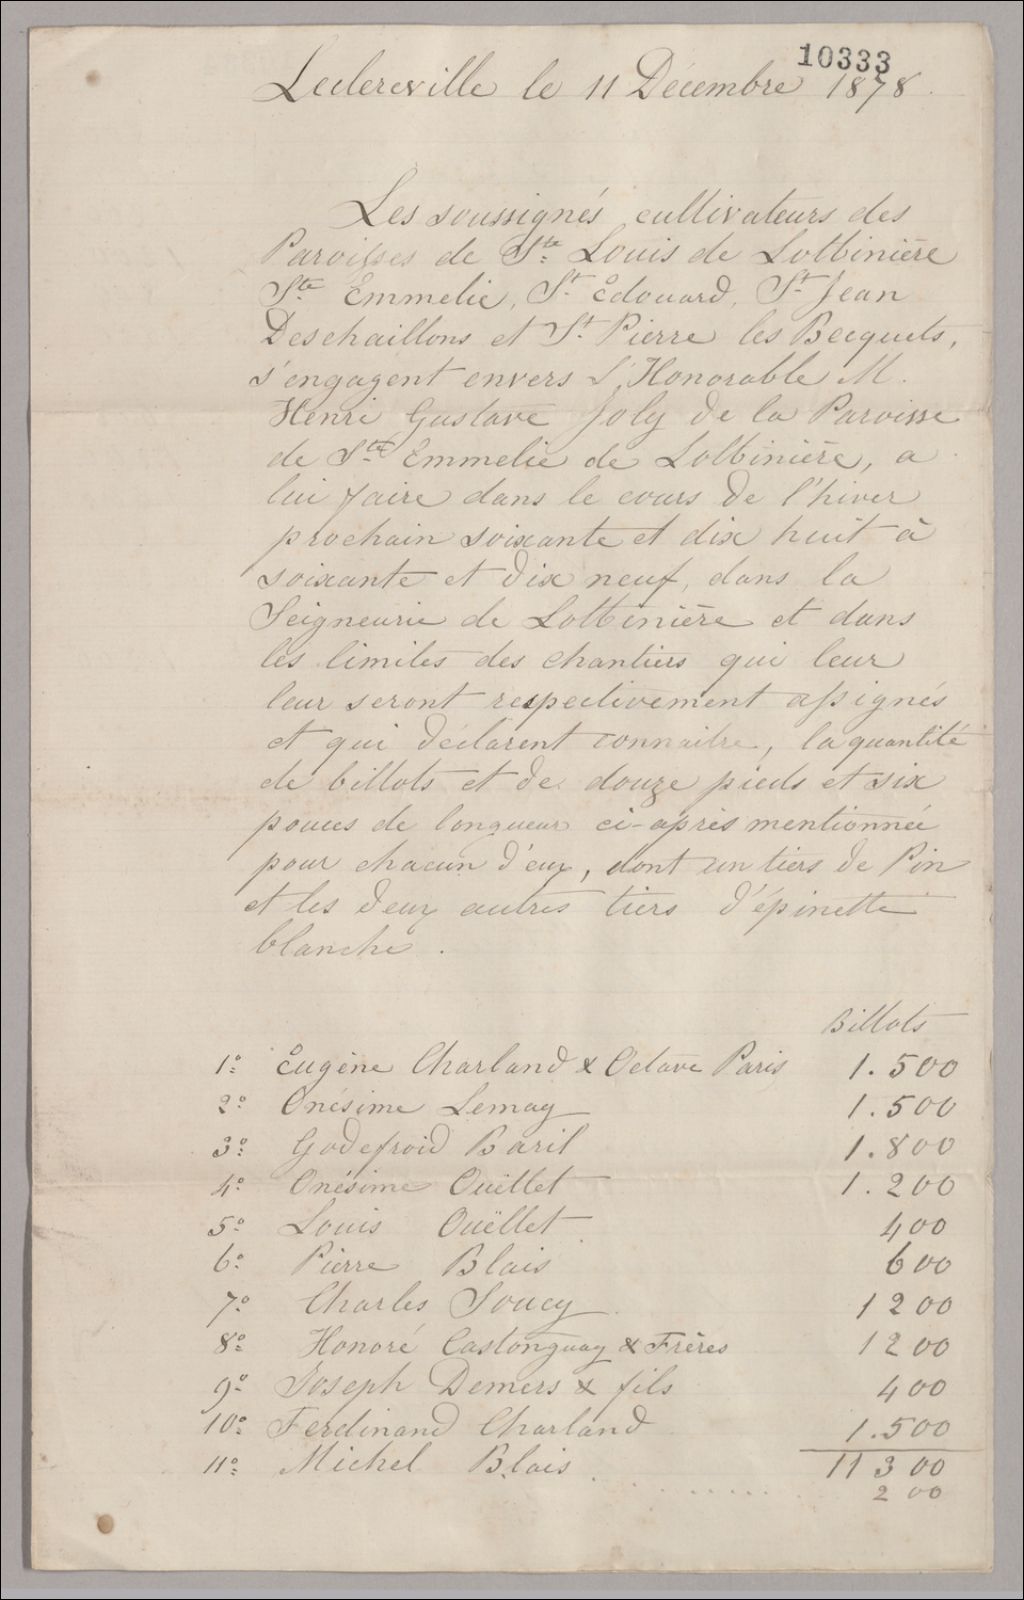 10333
Leclercville le 11 Décembre 1878.
Les soussignés cultivateurs des
Paroisses de Ste. Louis de Lotbinière
Ste. Emmelie, St. Edouard, St. Jean
Deschaillons et St. Pierre les Becquets,
s'engagent envers l'Honorable M.
Henri Gustave Joly de la Paroisse
de Ste. Emmelie de Lotbinière, a
lui faire dans le cours de l'hiver
prochain soixante et dix huit à
soixante et dix neuf, dans la
Seigneurie de Lotbinière et dans
les limites des chantiers qui leur
leur seront respectivement assignés
et qui déclarent connaitre, la quantité
de billots et de douze pieds et six
pouces de longueur ci-après mentionnée
pour chacun d'eux, dont un tiers de Pin
et les deux autres tiers d'épinette
blanche.
Billots
1o: Eugène Charland & Octave Paris 1.500
2o: Onésime Lemay 1.500
3o: Godefroid Baril 1.800
4o: Onésime Ouëllet 1.200
5o: Louis Ouëllet 400
6o: Pierre Blais 600
7o: Charles Soucy 1200
8o: Honoré Castonguay & Frères 1200
9o: Joseph Demers & fils 400
10o: Ferdinand Charland 1.500
11o: Michel Blais 11300
200